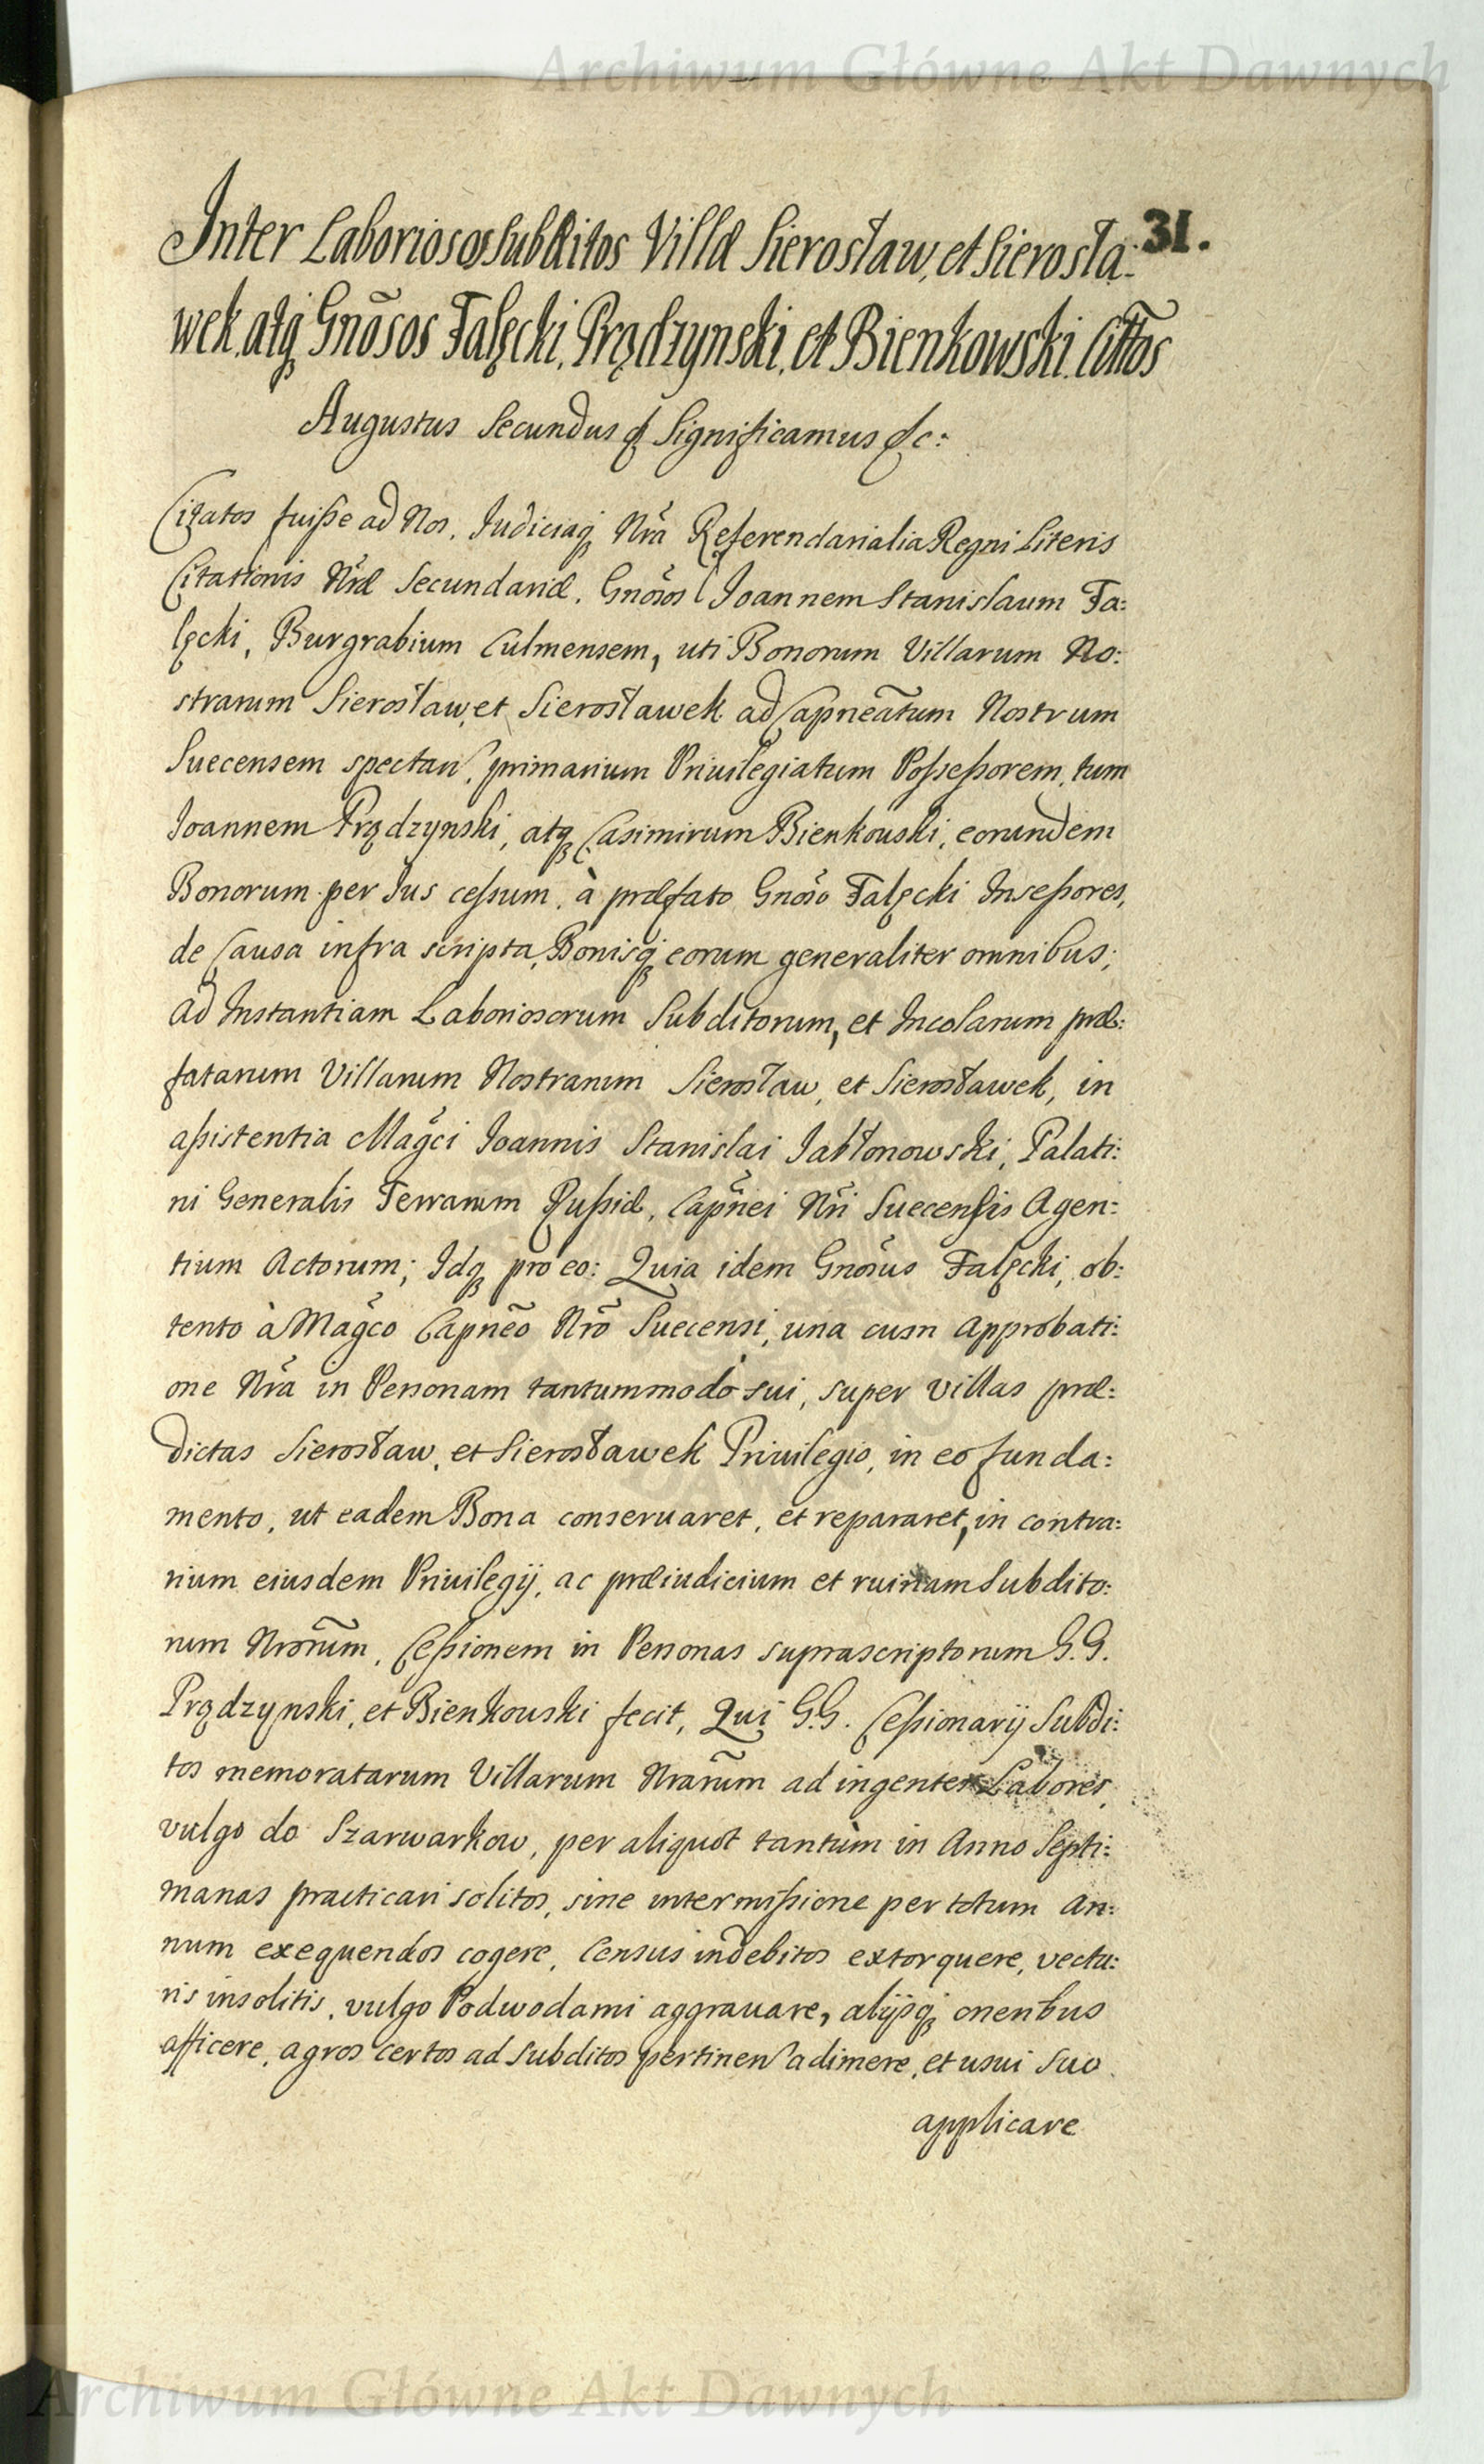 Archiwum Główne Akt Dawnych
31.
Inter Laboriosos Subditos Villæ Sierosław, et Sierosła:
wek. atq Gnõsos Falęcki, Prądzynski, et Bienkowski. Cittos
Augustus Secundus & Significamus &c:
Citatos fuisse ad Nos, Judiciaq Nrã Referendarialia Regni Literis
Citationis Nræ Secundariæ. Gnõsos Joannem Stanislaum Fa:
lęcki, Burgrabium Culmensem, uti Bonorum Villarum No:
strarum Sierosław, et Sierosławek ad Capneãtum Nostrum
Suecensem spectan, primarium Priuilegiatum Possessorem, tum
Joannem Prądzynski, atq Casimirum Bienkouski, eorundem
Bonorum per Jus cessum, à præfato Gnõso Falęcki Insessores,
de Causa infra scripta, Bonisq eorum generaliter omnibus;
ad Instantiam Laboriosorum Subditorum, et Incolarum præ:
fatarum Villarum Nostrarum Sierosław, et Sierosławek, in
assistentia Magci Joannis Stanislai Jabłonowski, Palati:
ni Generalis Terrarum Russiæ, Capnei Nri Suecensis Agen:
tium Actorum; Idq pro eo: Quia idem Gnõsus Falęcki, ob:
tento à Magco Capnẽo Nrõ Suecensi, una cum Approbati:
one Nrã in Personam tantummodo sui, super Villas præ:
dictas Sierosław, et Sierosławek Priuilegio, in eo funda:
mento, ut eadem Bona conseruaret, et repararet, in contra:
rium eiusdem Priuilegij, ac præiudicium et ruinam Subdito:
rum Nrorum, Cessionem in Personas suprascriptorum G.G.
Prądzynski, et Bienkouski fecit, Qui G.G. Cessionarij Subdi:
tos memoratarum Villarum Nrarum ad ingentes Labores,
vulgo do Szarwarkow, per aliquot tantùm in Anno Septi:
manas practicari solitos, sine intermissione per totum An:
num exequendos cogere, Census indebitos extorquere, vectu:
ris insolitis, vulgo Podwodami aggrauare, alijsq oneribus
afficere, agros certos ad Subditos pertinen adimere, et usui suo
applicare
Archiwum Główne Akt Dawnych